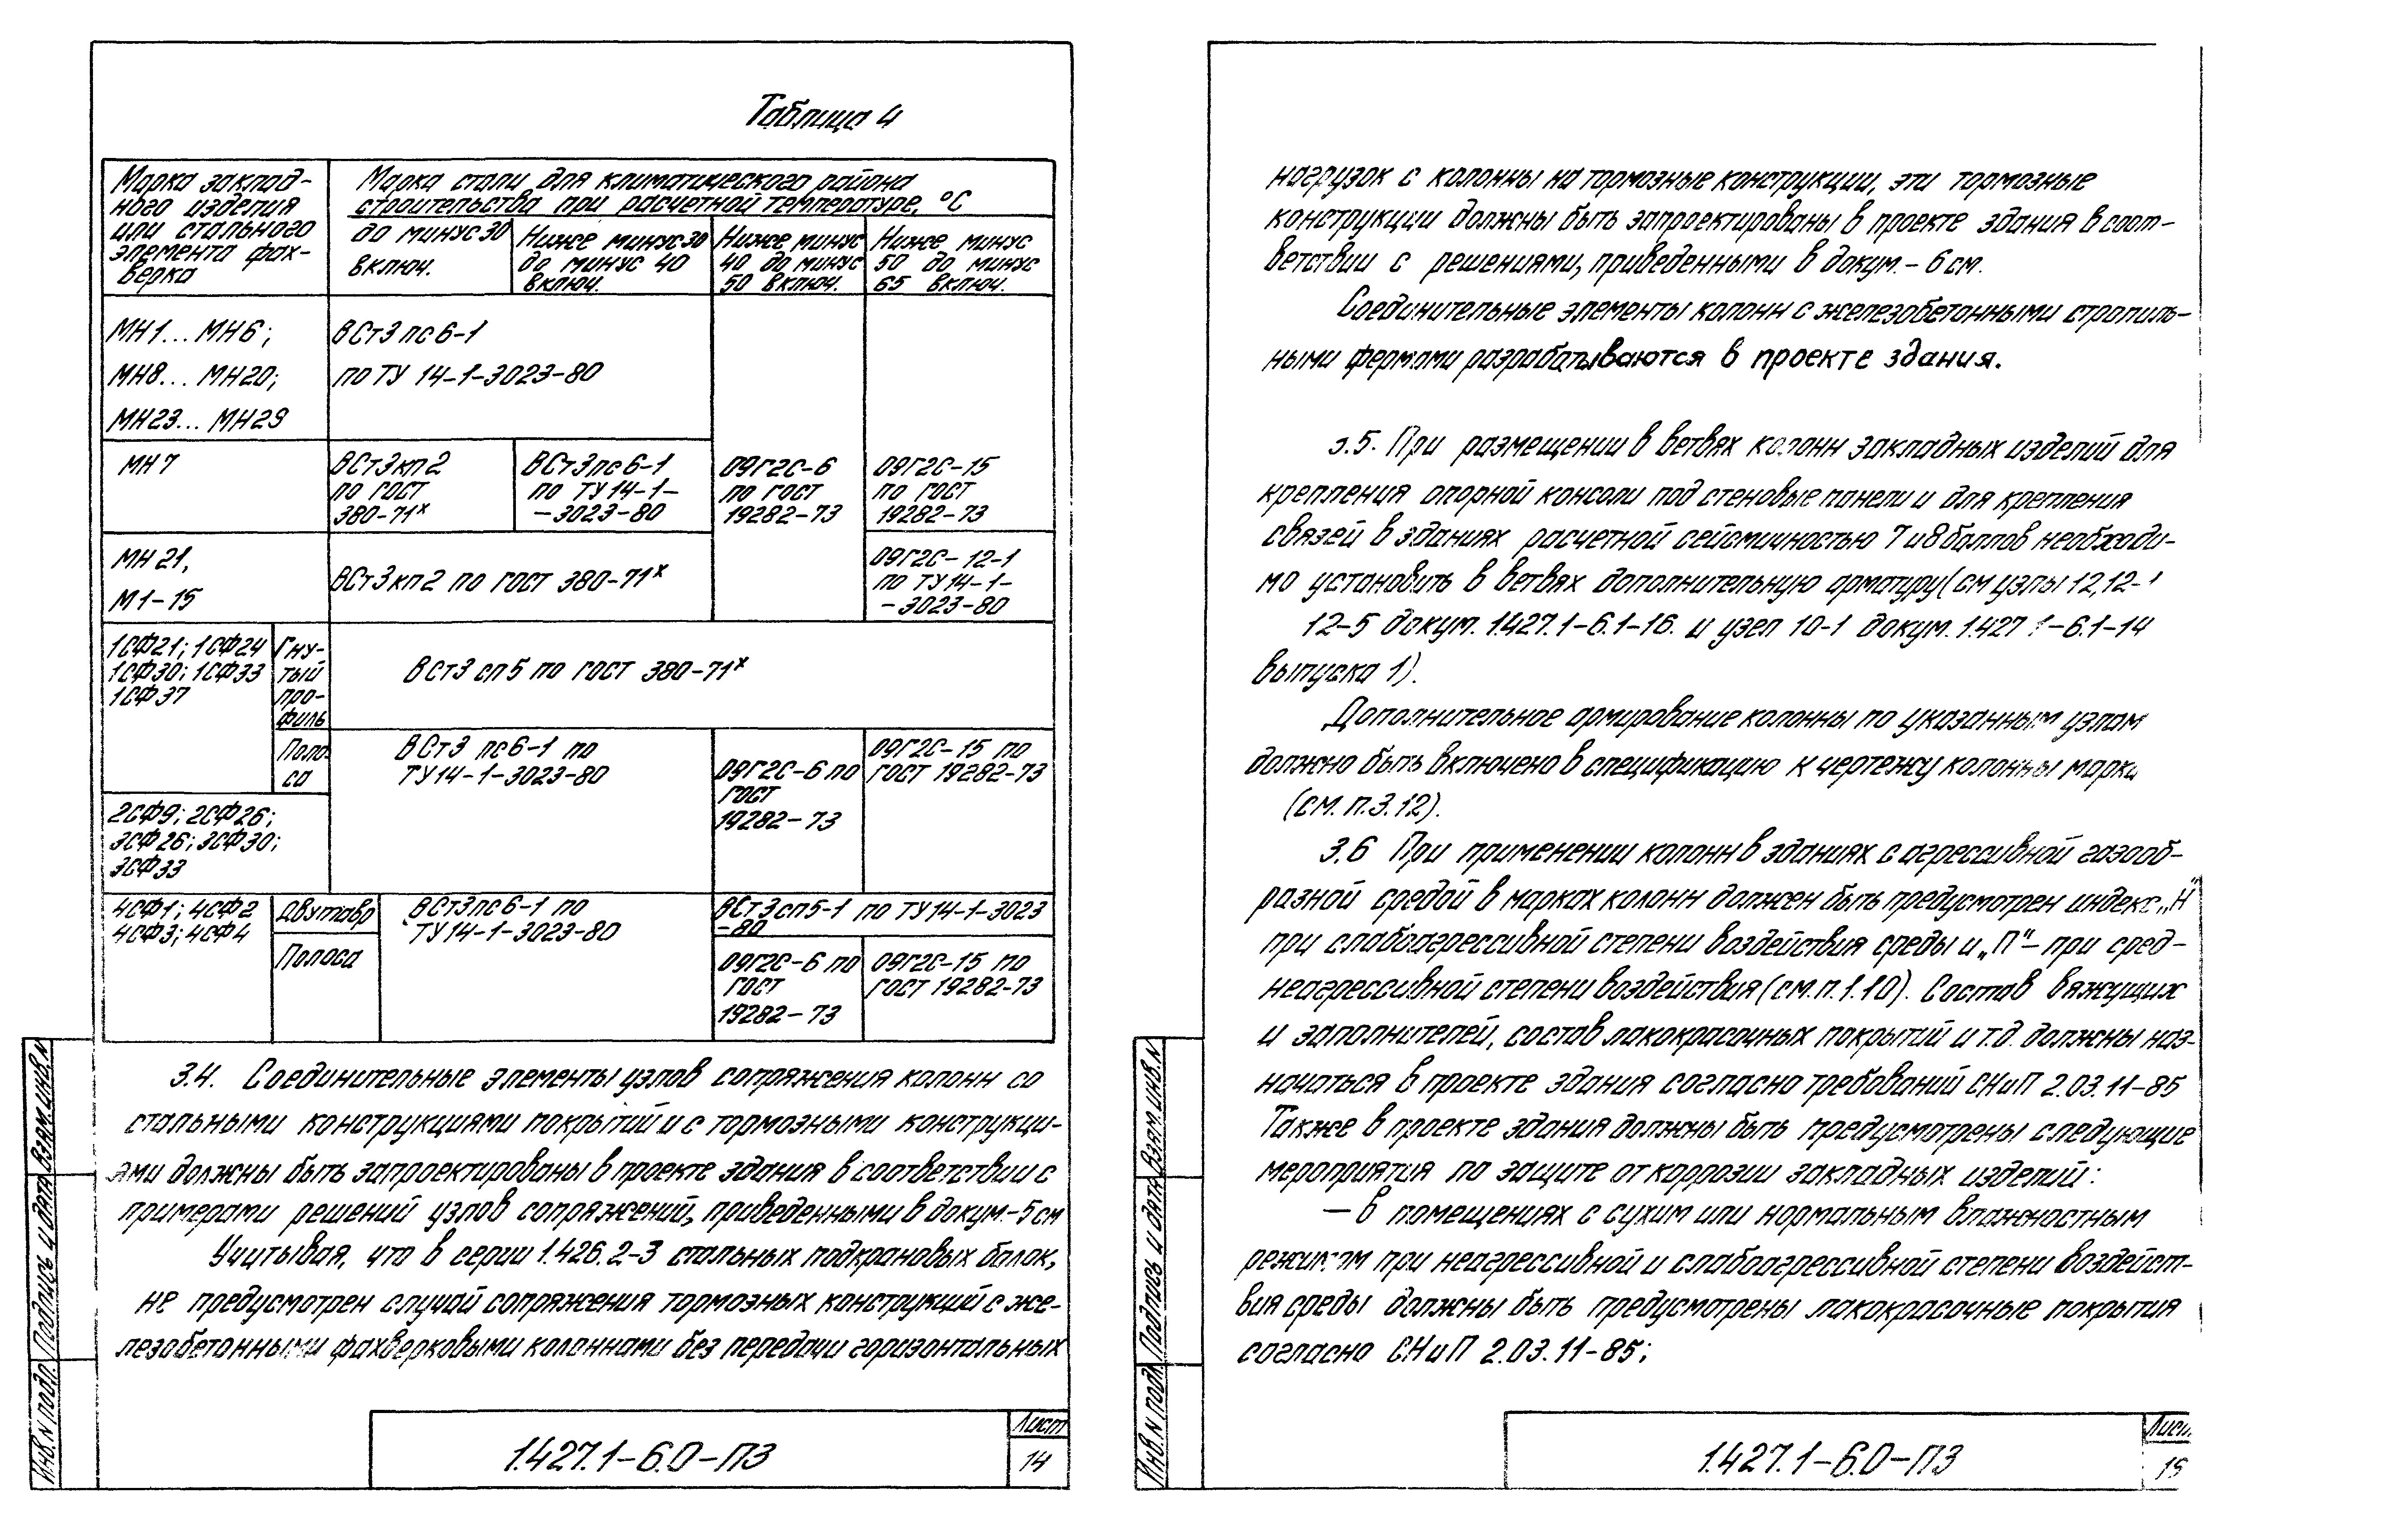 Таблица 4
Марка заклад-
ного изделия
или стального
элемента фах-
верка
Марка стали для климатического района
строительства при расчетной температуре, °С
до минус 30
включ.
Ниже минус 30
до минус 40
включ.
Ниже минус
40 до минус
50 включ.
Ниже минус
50 до минус
65 включ.
МН1... МН6;
МН8... МН20;
МН23... МН29
ВСт3пс6-1
по ТУ 14-1-3023-80
МН7
ВСт3кп2
по ГОСТ
380-71х
ВСт3пс6-1
по ТУ14-1-
-3023-80
09Г2С-6
по ГОСТ
19282-73
09Г2С-15
по ГОСТ
19282-73
МН21,
М1-15
ВСт3кп2 по ГОСТ 380-71х
09Г2С-12-1
по ТУ14-1-
-3023-80
1СФ21; 1СФ24
1СФ30; 1СФ33
1СФ37
Гну-
тый
про-
филь
ВСт3сп5 по ГОСТ 380-71х
Поло-
са
ВСт3 пс6-1 по
ТУ14-1-3023-80
09Г2С-6 по
ГОСТ
19282-73
09Г2С-15 по
ГОСТ 19282-73
2СФ9; 2СФ26;
3СФ26; 3СФ30;
3СФ33
4СФ1; 4СФ2
4СФ3; 4СФ4
Двутавр
ВСт3пс6-1 по
ТУ14-1-3023-80
ВСт3сп5-1 по ТУ14-1-3023
-80
Полоса
09Г2С-6 по
ГОСТ
19282-73
09Г2С-15 по
ГОСТ 19282-73
3.4. Соединительные элементы узлов сопряжения колонн со
стальными конструкциями покрытий и с тормозными конструкци-
ями должны быть запроектированы в проекте здания в соответствии с
примерами решений узлов сопряжений, приведенными в докум.-5см
Учитывая, что в серии 1.426.2-3 стальных подкрановых балок,
не предусмотрен случай сопряжения тормозных конструкций с же-
лезобетонными фахверковыми колоннами без передачи горизонтальных
Инв.N подл. Подпись и дата Взам.инв.N
1.427.1-6.0-ПЗ
Лист
14
нагрузок с колонны на тормозные конструкции, эти тормозные
конструкции должны быть запроектированы в проекте здания в соот-
ветствии с решениями, приведенными в докум.-6см.
Соединительные элементы колонн с железобетонными стропиль-
ными фермами разрабатываются в проекте здания.
3.5. При размещении в ветвях колонн закладных изделий для
крепления опорной консоли под стеновые панели и для крепления
связей в зданиях расчетной сейсмичностью 7 и 8 баллов необходи-
мо установить в ветвях дополнительную арматуру (см узлы 12, 12-1
12-5 докум. 1.427.1-6.1-16. и узел 10-1 докум. 1.427.1-6.1-14
выпуска 1).
Дополнительное армирование колонны по указанным узлам
должно быть включено в спецификацию к чертежу колонны марки
(см. п.3.12).
3.6 При применении колонн в зданиях с агрессивной газооб-
разной средой в марках колонн должен быть предусмотрен индекс „Н"
при слабоагрессивной степени воздействия среды и „П"- при сред-
неагрессивной степени воздействия (см.п.1.10). Состав вяжущих
и заполнителей, состав лакокрасочных покрытий и т.д. должны наз-
начаться в проекте здания согласно требований СНиП 2.03.11-85
Также в проекте здания должны быть предусмотрены следующие
мероприятия по защите от коррозии закладных изделий:
— в помещениях с сухим или нормальным влажностным
режимом при неагрессивной и слабоагрессивной степени воздейст-
вия среды должны быть предусмотрены лакокрасочные покрытия
согласно СНиП 2.03.11-85;
Инв.N подл. Подпись и дата Взам.инв.N
1.427.1-6.0-ПЗ
Лист
15